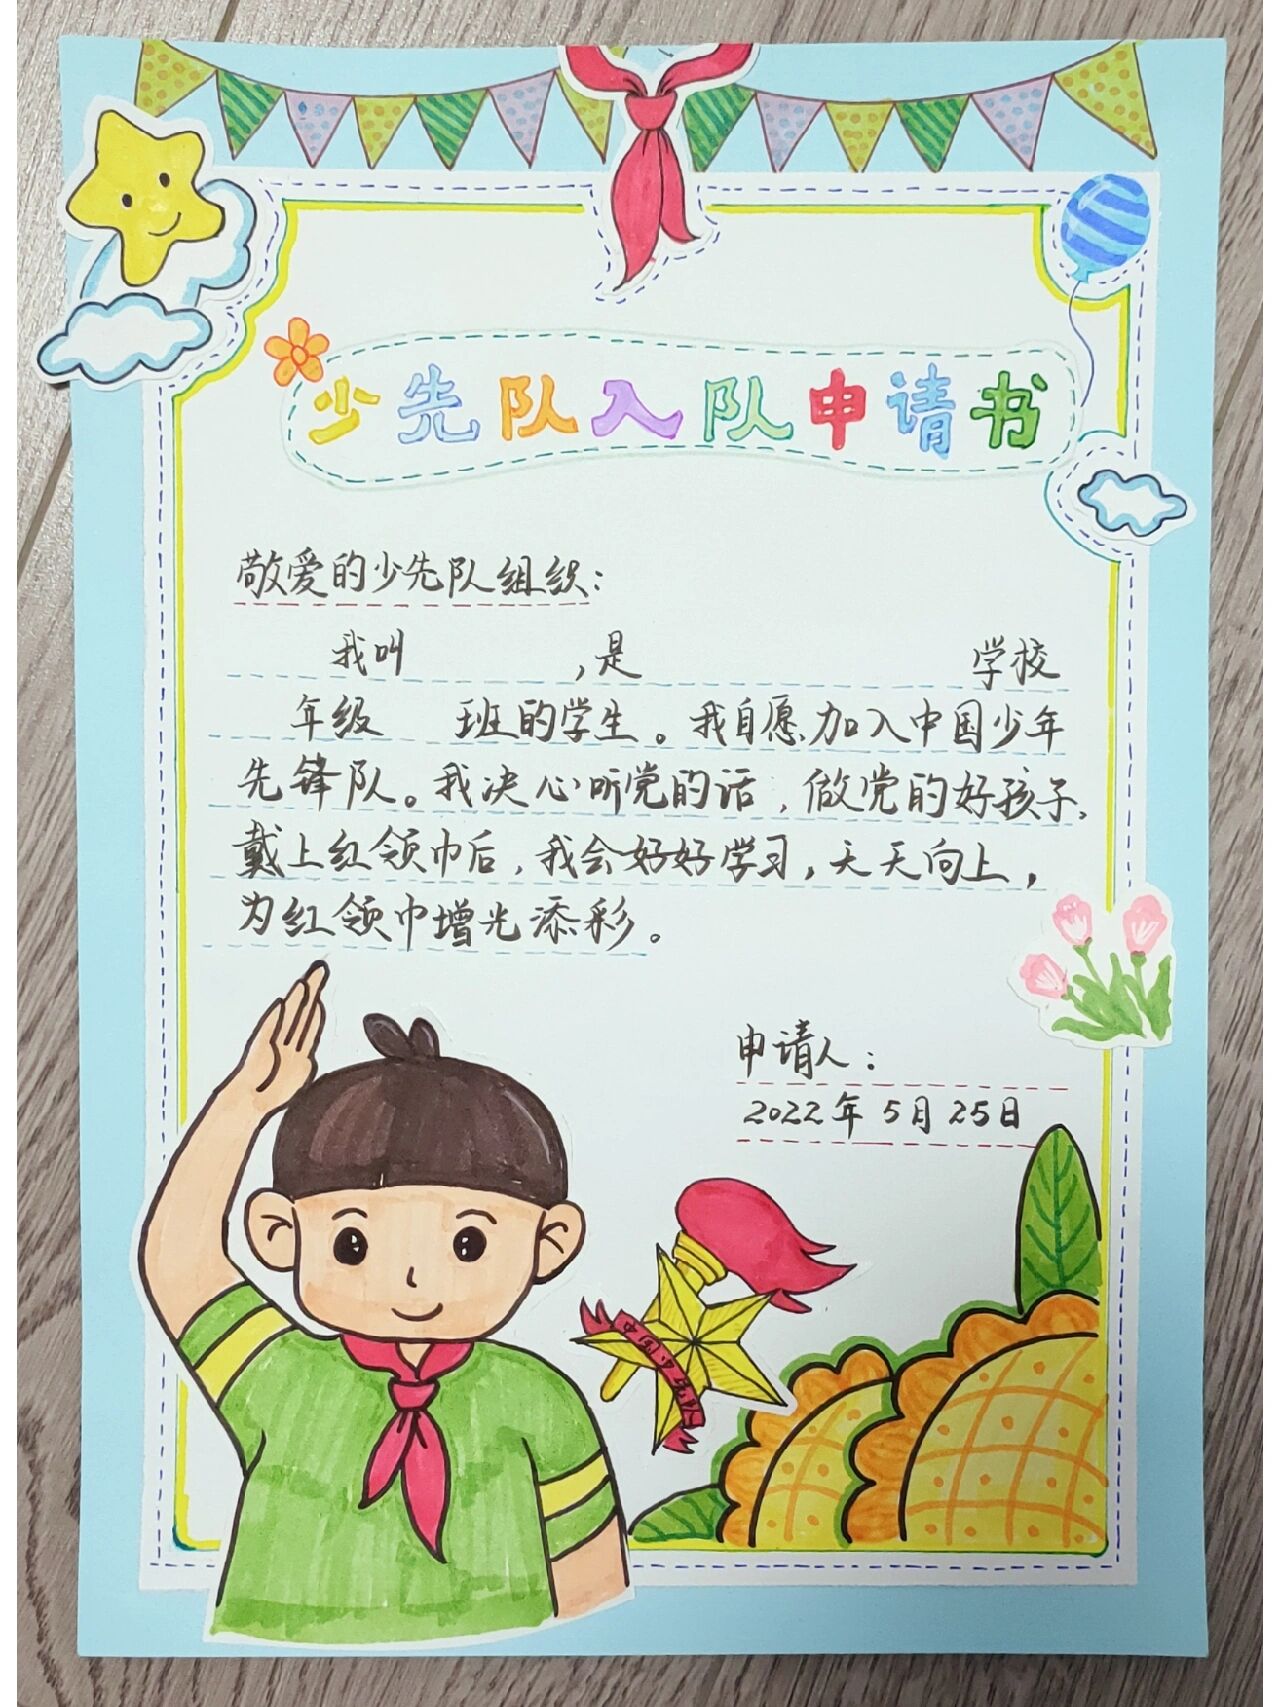 少先队入队申请书
敬爱的少先队组织：
我叫 ，是 学校
年级 班的学生。我自愿加入中国少年
先锋队。我决心听党的话，做党的好孩子，
戴上红领巾后，我会好好学习，天天向上，
为红领巾增光添彩。
申请人：
2022年5月25日